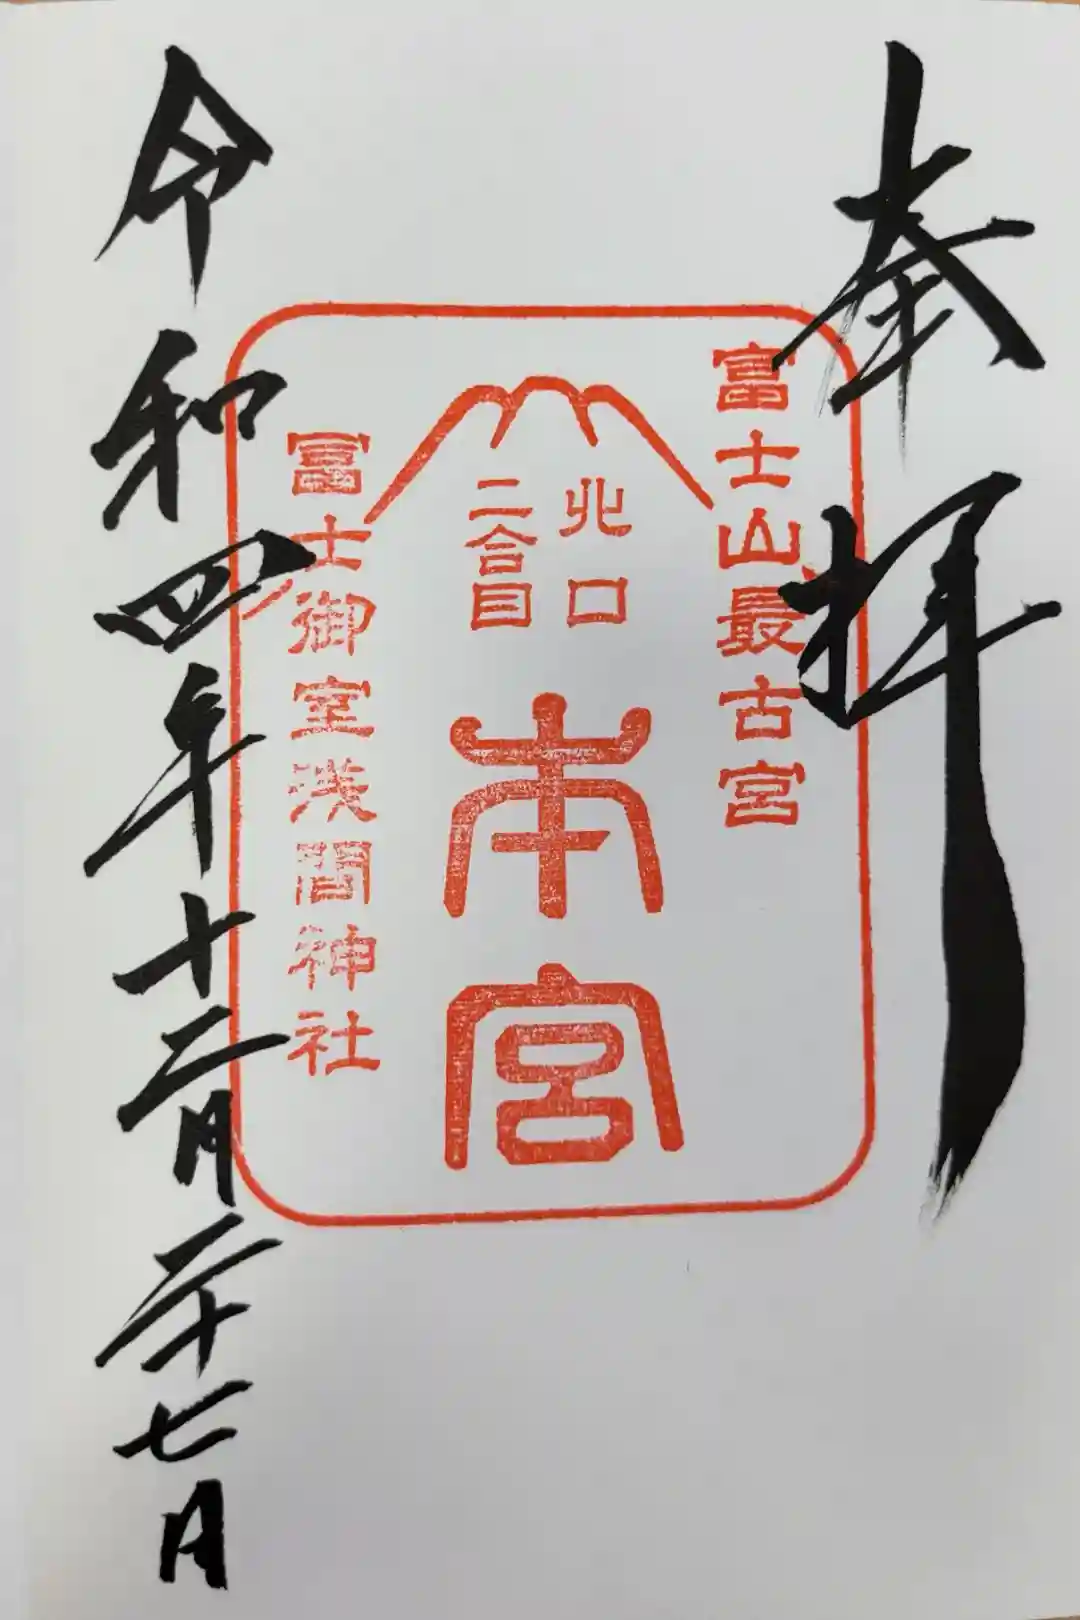 奉拝
富士山最古宮
北口
二合目
本宮
富士御室浅間神社
令和四年十二月二十七日